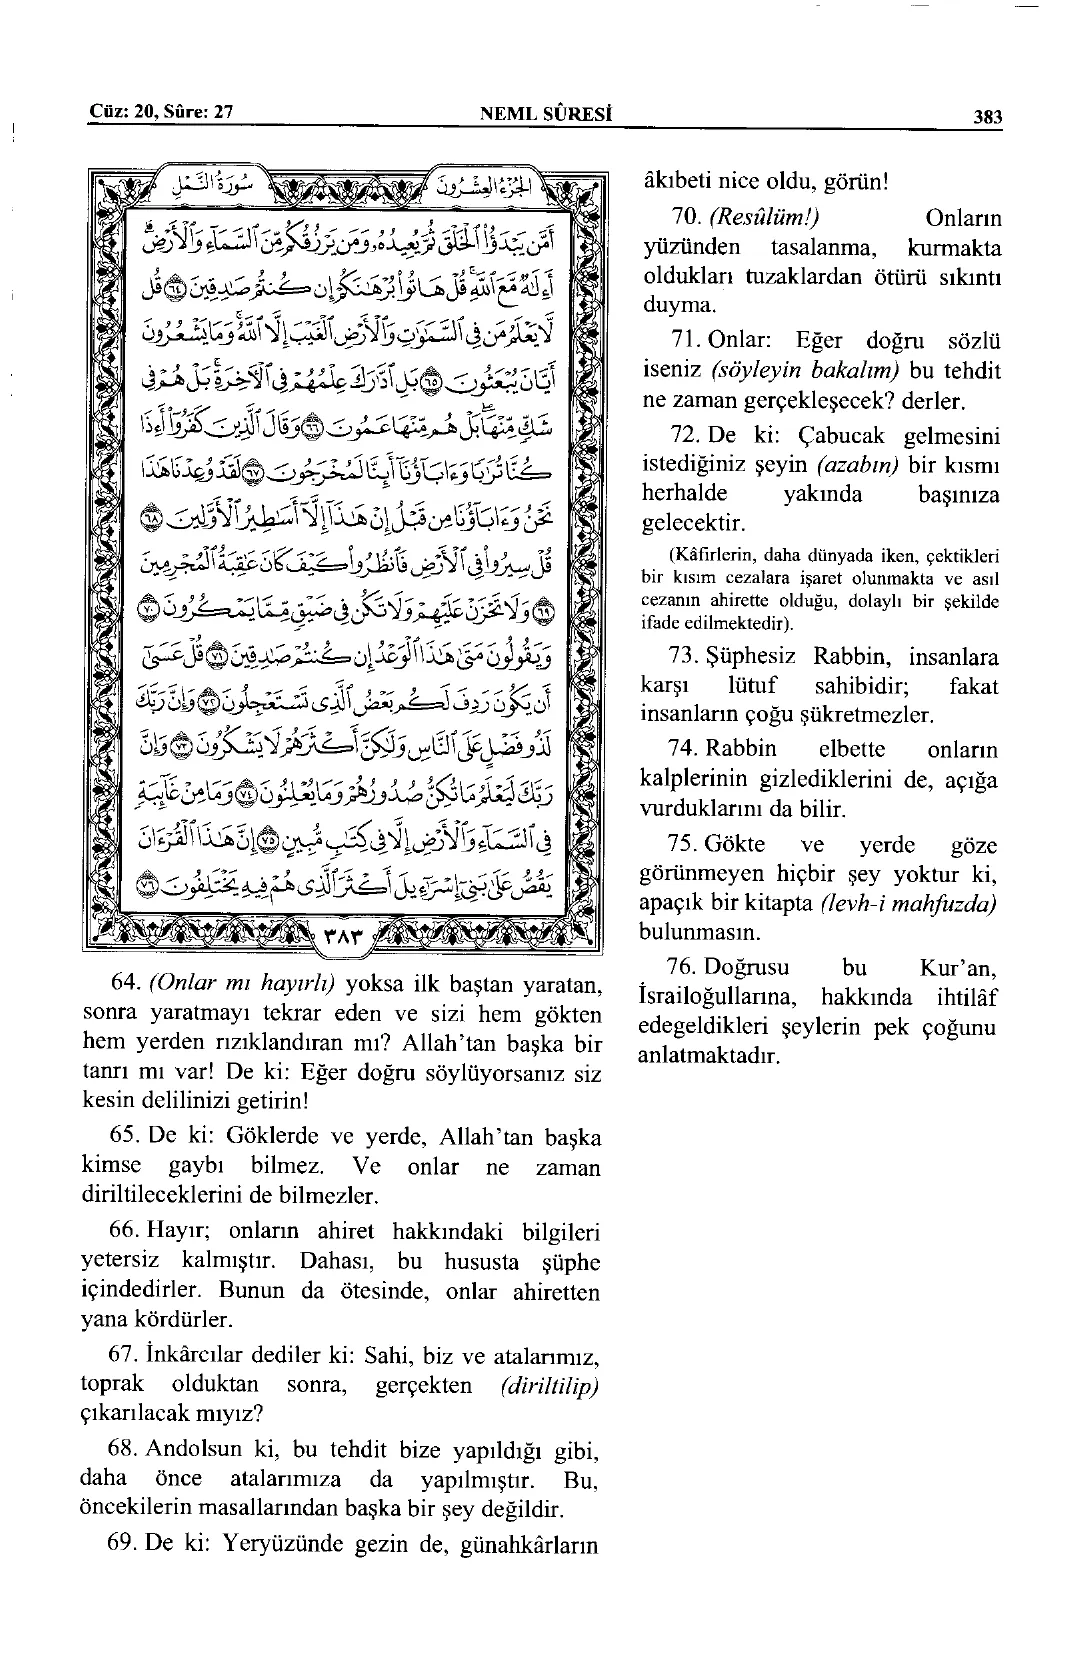 Cüz: 20, Sûre: 27 NEML SÛRESİ 383
سُورَةُ النَّمْلِ
الجُزْءُ العِشْرُونَ
أَمَّن يَبْدَؤُا۟ ٱلْخَلْقَ ثُمَّ يُعِيدُهُۥ وَمَن يَرْزُقُكُم مِّنَ ٱلسَّمَآءِ وَٱلْأَرْضِ
أَءِلَٰهٌ مَّعَ ٱللَّهِ قُلْ هَاتُوا۟ بُرْهَٰنَكُمْ إِن كُنتُمْ صَٰدِقِينَ ٦٤ قُل
لَّا يَعْلَمُ مَن فِى ٱلسَّمَٰوَٰتِ وَٱلْأَرْضِ ٱلْغَيْبَ إِلَّا ٱللَّهُ وَمَا يَشْعُرُونَ
أَيَّانَ يُبْعَثُونَ ٦٥ بَلِ ٱدَّٰرَكَ عِلْمُهُمْ فِى ٱلْءَاخِرَةِ بَلْ هُمْ فِى
شَكٍّ مِّنْهَا بَلْ هُم مِّنْهَا عَمُونَ ٦٦ وَقَالَ ٱلَّذِينَ كَفَرُوٓا۟ أَءِذَا
كُنَّا تُرَٰبًا وَءَابَآؤُنَآ أَئِنَّا لَمُخْرَجُونَ ٦٧ لَقَدْ وُعِدْنَا هَٰذَا
نَحْنُ وَءَابَآؤُنَا مِن قَبْلُ إِنْ هَٰذَآ إِلَّآ أَسَٰطِيرُ ٱلْأَوَّلِينَ ٦٨
قُلْ سِيرُوا۟ فِى ٱلْأَرْضِ فَٱنظُرُوا۟ كَيْفَ كَانَ عَٰقِبَةُ ٱلْمُجْرِمِينَ
٦٩ وَلَا تَحْزَنْ عَلَيْهِمْ وَلَا تَكُن فِى ضَيْقٍ مِّمَّا يَمْكُرُونَ ٧٠
وَيَقُولُونَ مَتَىٰ هَٰذَا ٱلْوَعْدُ إِن كُنتُمْ صَٰدِقِينَ ٧١ قُلْ عَسَىٰٓ
أَن يَكُونَ رَدِفَ لَكُم بَعْضُ ٱلَّذِى تَسْتَعْجِلُونَ ٧٢ وَإِنَّ رَبَّكَ
لَذُو فَضْلٍ عَلَى ٱلنَّاسِ وَلَٰكِنَّ أَكْثَرَهُمْ لَا يَشْكُرُونَ ٧٣ وَإِنَّ
رَبَّكَ لَيَعْلَمُ مَا تُكِنُّ صُدُورُهُمْ وَمَا يُعْلِنُونَ ٧٤ وَمَا مِنْ غَآئِبَةٍ
فِى ٱلسَّمَآءِ وَٱلْأَرْضِ إِلَّا فِى كِتَٰبٍ مُّبِينٍ ٧٥ إِنَّ هَٰذَا ٱلْقُرْءَانَ
يَقُصُّ عَلَىٰ بَنِىٓ إِسْرَٰٓءِيلَ أَكْثَرَ ٱلَّذِى هُمْ فِيهِ يَخْتَلِفُونَ ٧٦
٣٨٣
64. (Onlar mı hayırlı) yoksa ilk baştan yaratan,
sonra yaratmayı tekrar eden ve sizi hem gökten
hem yerden rızıklandıran mı? Allah'tan başka bir
tanrı mı var! De ki: Eğer doğru söylüyorsanız siz
kesin delilinizi getirin!
65. De ki: Göklerde ve yerde, Allah'tan başka
kimse gaybı bilmez. Ve onlar ne zaman
diriltileceklerini de bilmezler.
66. Hayır; onların ahiret hakkındaki bilgileri
yetersiz kalmıştır. Dahası, bu hususta şüphe
içindedirler. Bunun da ötesinde, onlar ahiretten
yana kördürler.
67. İnkârcılar dediler ki: Sahi, biz ve atalarımız,
toprak olduktan sonra, gerçekten (diriltilip)
çıkarılacak mıyız?
68. Andolsun ki, bu tehdit bize yapıldığı gibi,
daha önce atalarımıza da yapılmıştır. Bu,
öncekilerin masallarından başka bir şey değildir.
69. De ki: Yeryüzünde gezin de, günahkârların
âkıbeti nice oldu, görün!
70. (Resûlüm!) Onların
yüzünden tasalanma, kurmakta
oldukları tuzaklardan ötürü sıkıntı
duyma.
71. Onlar: Eğer doğru sözlü
iseniz (söyleyin bakalım) bu tehdit
ne zaman gerçekleşecek? derler.
72. De ki: Çabucak gelmesini
istediğiniz şeyin (azabın) bir kısmı
herhalde yakında başınıza
gelecektir.
(Kâfirlerin, daha dünyada iken, çektikleri
bir kısım cezalara işaret olunmakta ve asıl
cezanın ahirette olduğu, dolaylı bir şekilde
ifade edilmektedir).
73. Şüphesiz Rabbin, insanlara
karşı lütuf sahibidir; fakat
insanların çoğu şükretmezler.
74. Rabbin elbette onların
kalplerinin gizlediklerini de, açığa
vurduklarını da bilir.
75. Gökte ve yerde göze
görünmeyen hiçbir şey yoktur ki,
apaçık bir kitapta (levh-i mahfuzda)
bulunmasın.
76. Doğrusu bu Kur'an,
İsrailoğullarına, hakkında ihtilâf
edegeldikleri şeylerin pek çoğunu
anlatmaktadır.